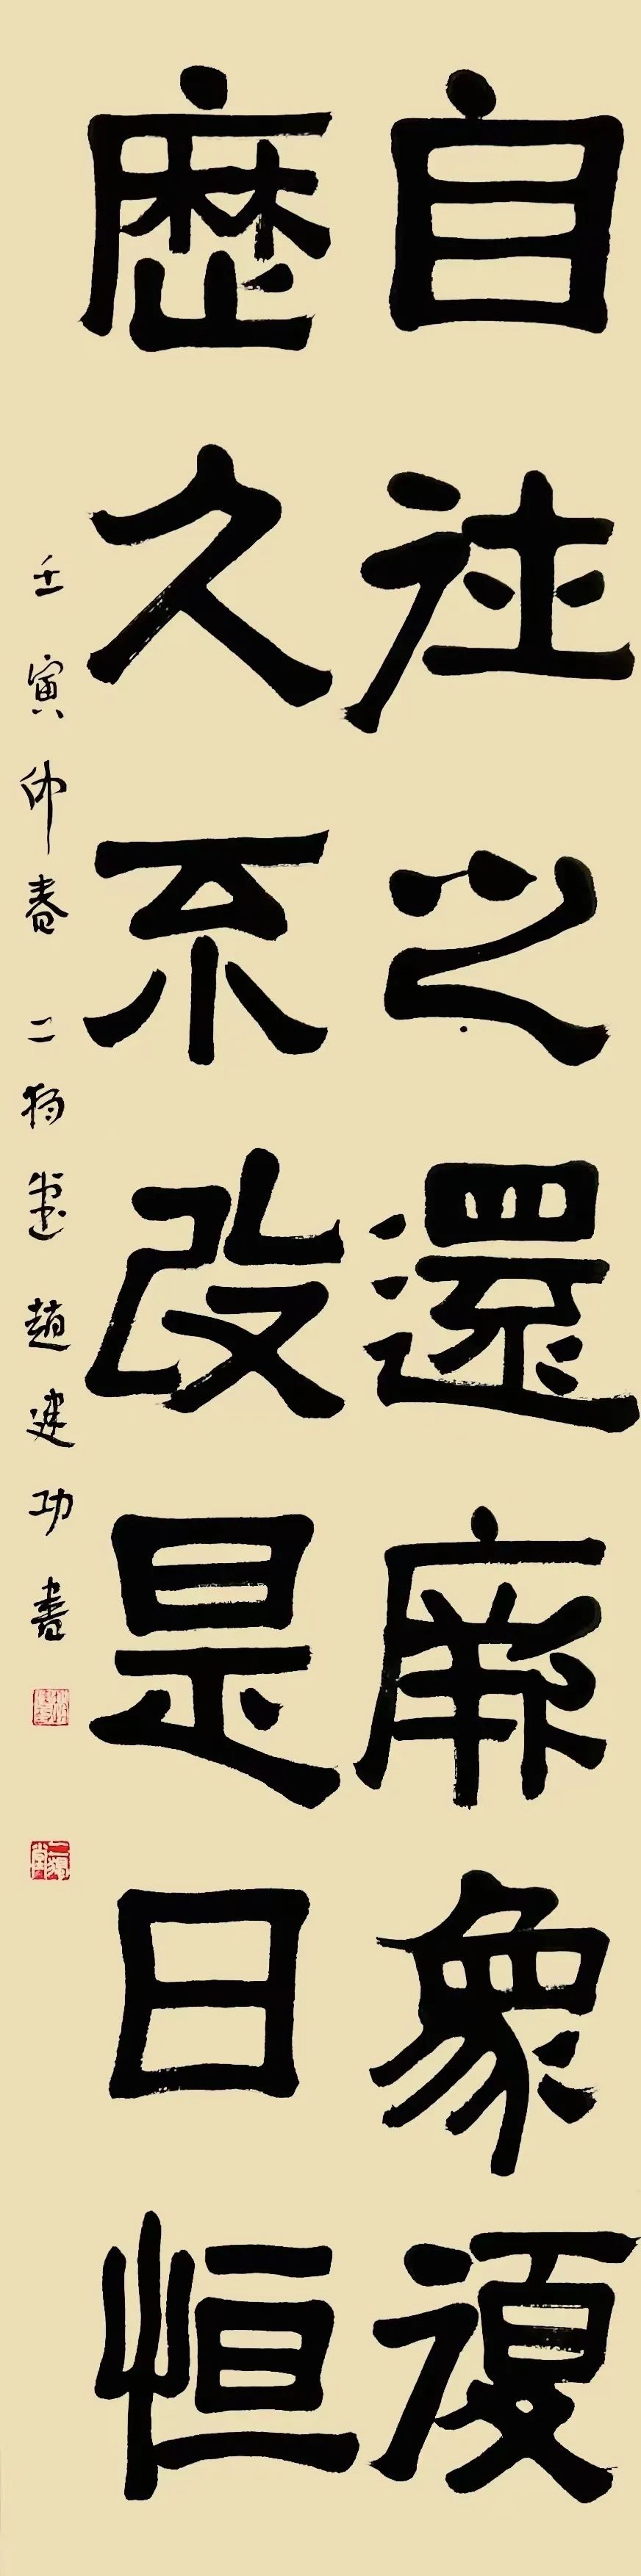 自往之還厥象復
歷久不改是曰恒
壬寅仲春二独堂趙建功書